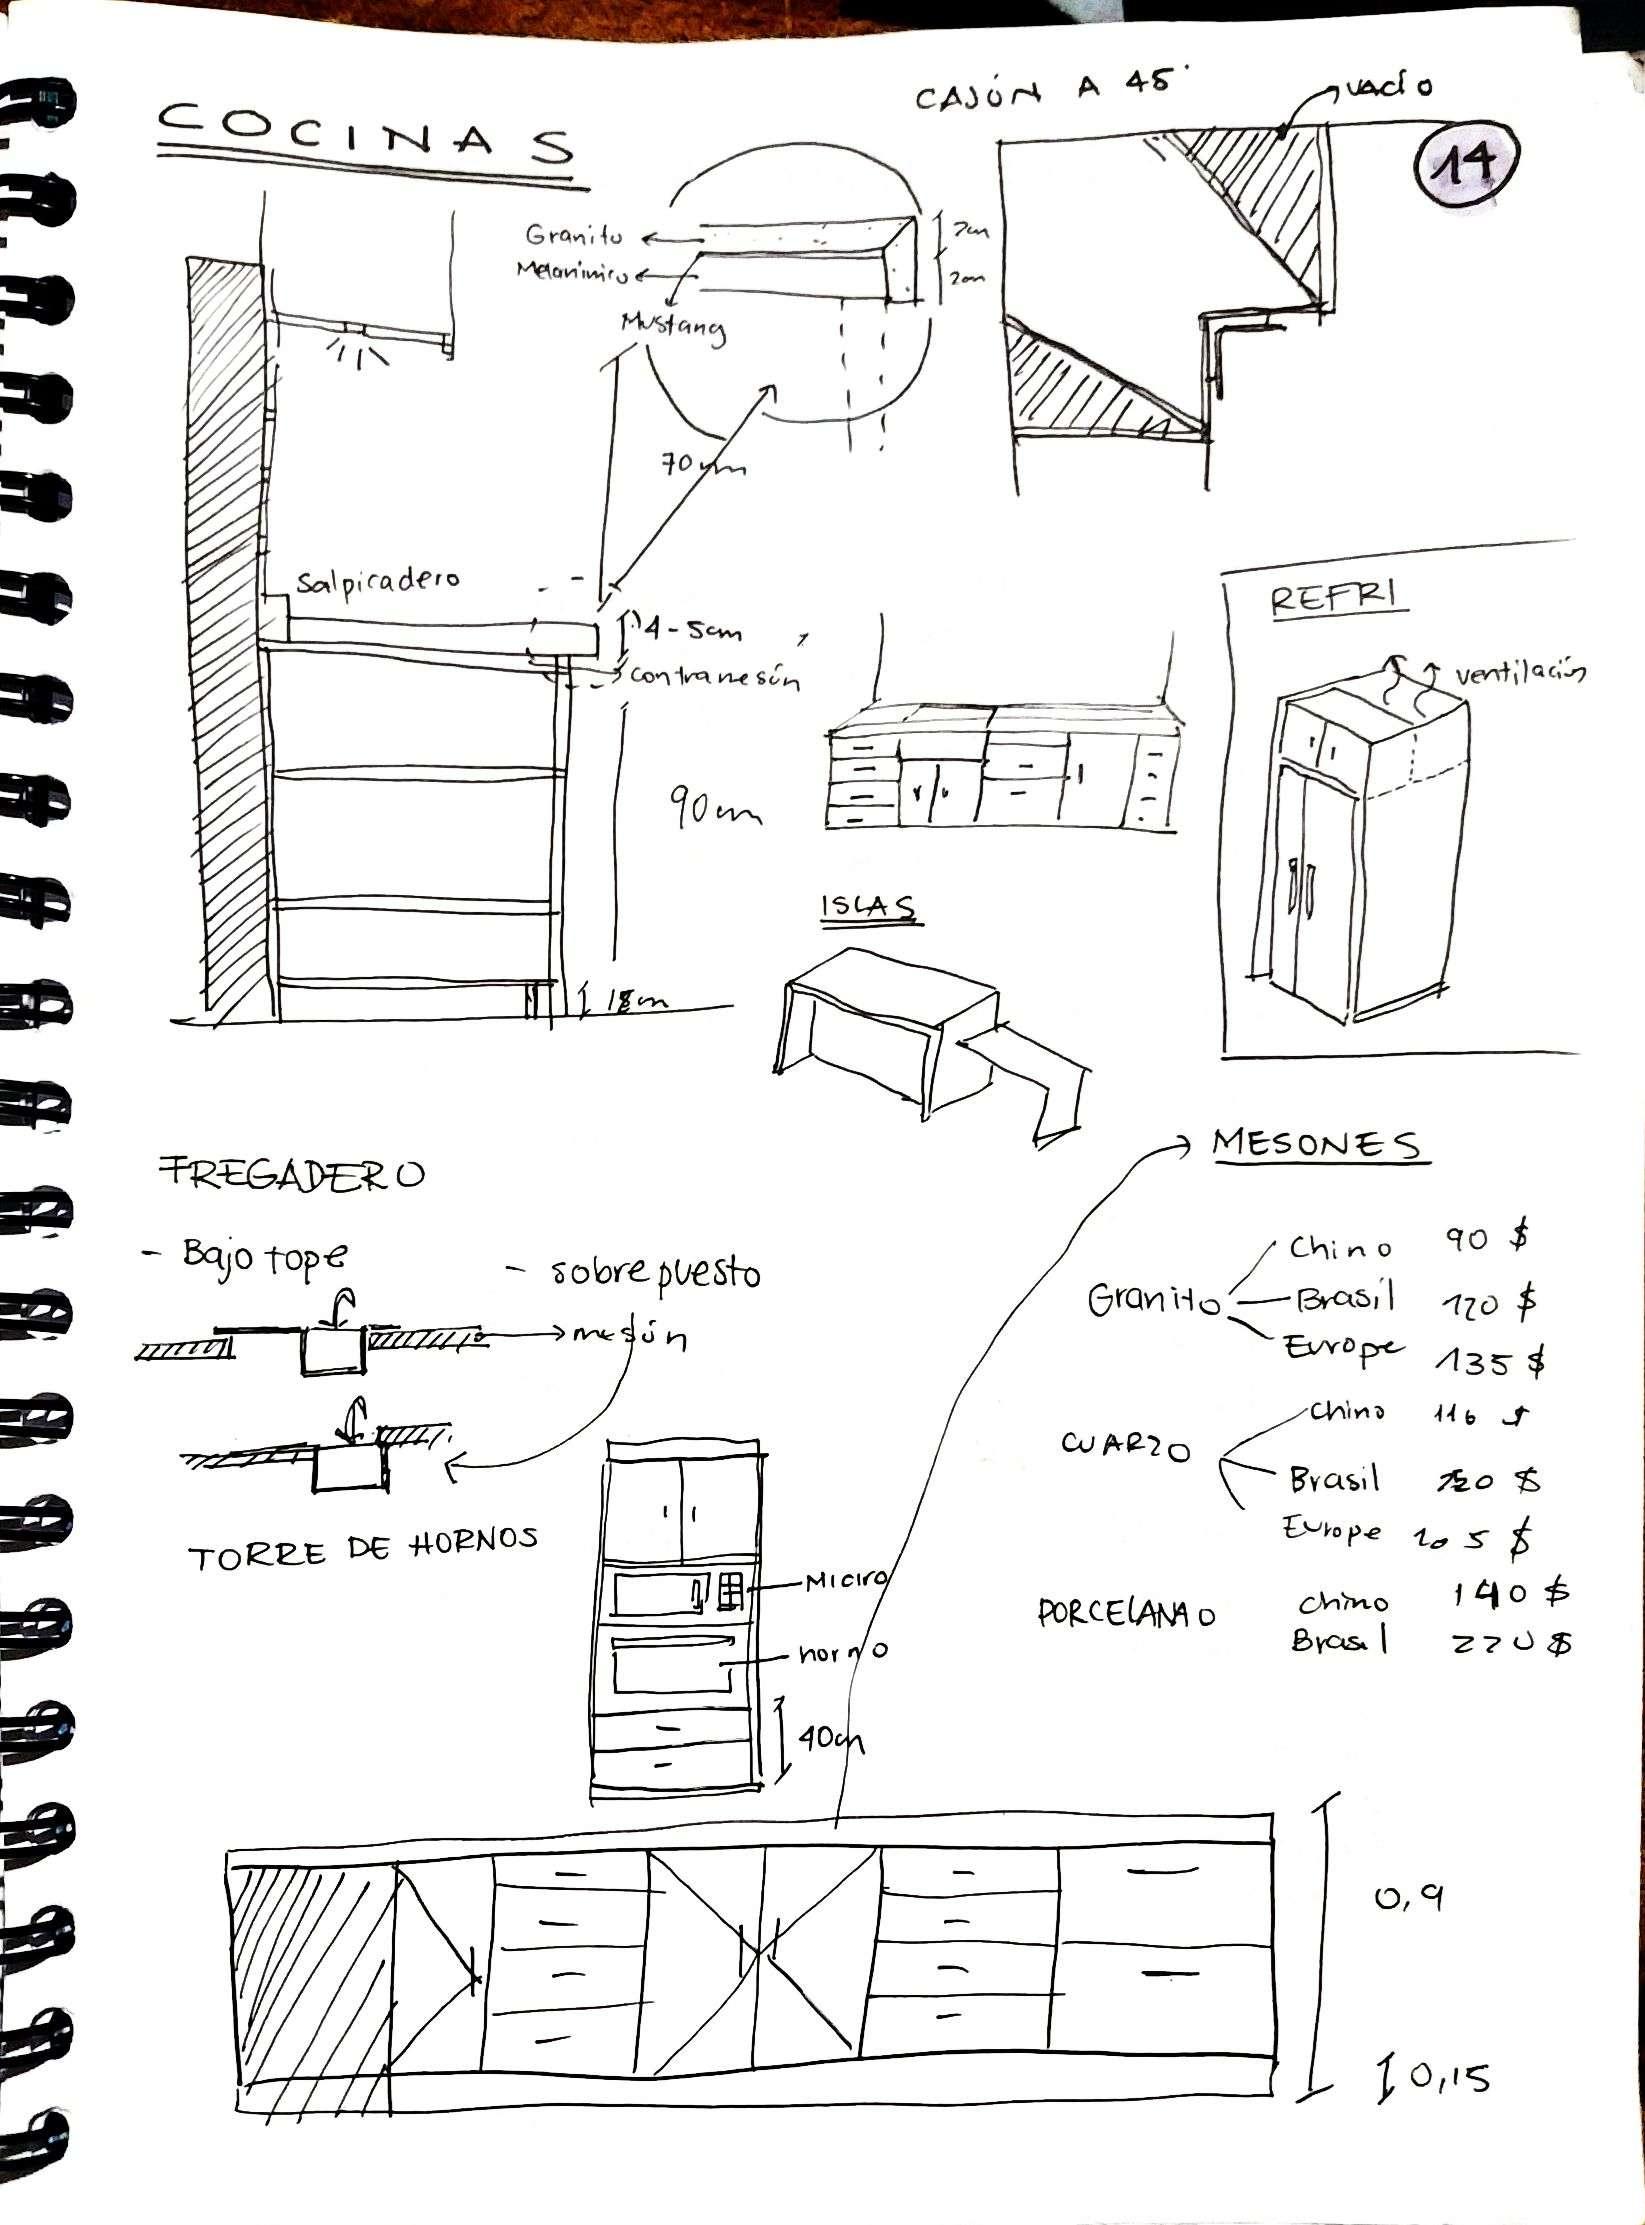 COCINAS
CAJÓN A 45°
VACÍO
14
Granito
2cm
Melaminico
2cm
Mustang
70cm
Salpicadero
4-5cm
contramesón
90cm
18cm
REFRI
ventilación
ISLAS
FREGADERO
- Bajo tope
- sobrepuesto
mesón
TORRE DE HORNOS
Micro
horno
40cm
MESONES
Granito
Chino 90 $
Brasil 120 $
Europe 135 $
CUARZO
Chino 116 $
Brasil
Europe 205 $
PORCELANAO
chino 140 $
Brasil 220 $
0,9
0,15